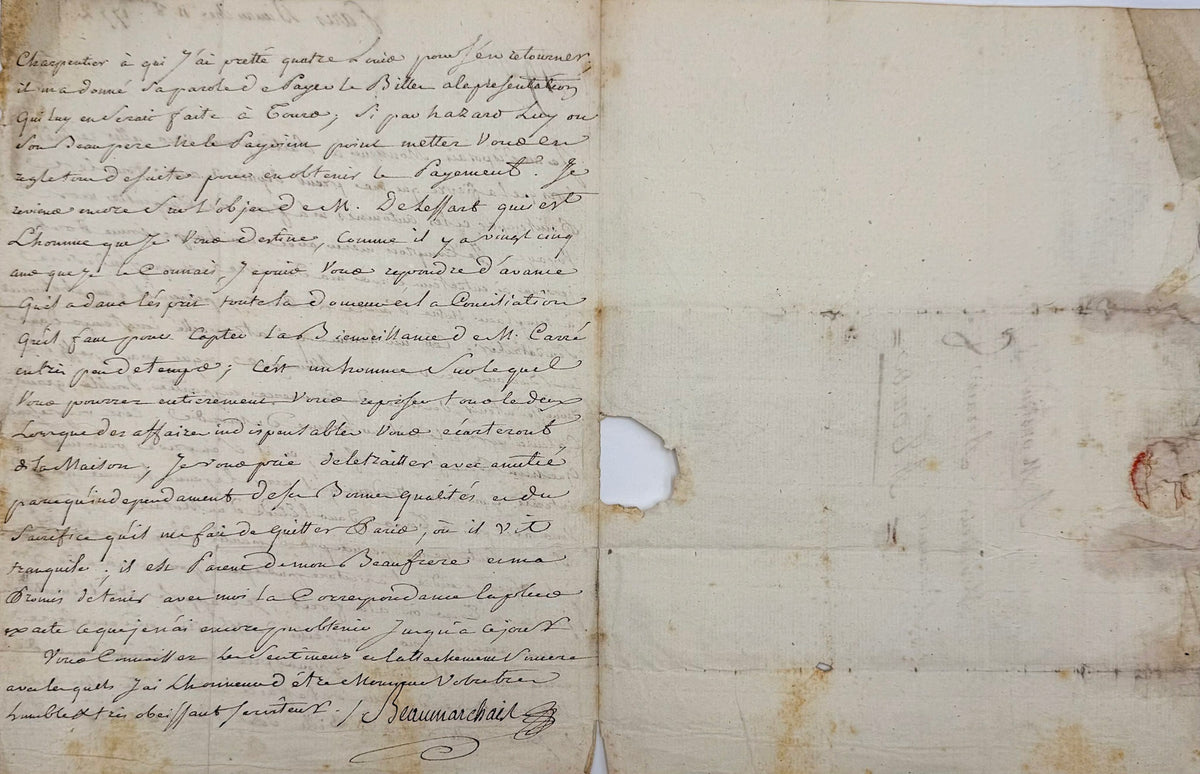 Charpentier à qui J'ai pretté quatre Louis pour s'en retourner,
il m'a donné sa parole de Payer le Billet à la presentation
Qui luy en seroit faite à Tours; Si par hazard Luy ou
Son Beaupere ne le Payoient point mettez Vous en
regle tout desuite pour en obtenir le Payement. Je
reviens encore sur L'objet de M. Delessart qui est
L'homme que Je Vous destine, Comme il y a vingt cinq
ans que Je le Connais, Je puis Vous repondre d'avance
Qu'il a dans l'ésprit toute la douceur et la Conciliation
Qu'il faut pour Capter La Bienveillance de M. Carré
en très peu de temps; C'ést un homme sur lequel
Vous pourrez entierement Vous reposer tous les deux
Lorsque des affaires indispensables Vous écarteront
de la Maison; Je vous prie de le traitter avec amitié
parce qu'independament de ses Bonnes qualités et du
Sacrifice qu'il me fait de Quitter Paris, où il vit
tranquile; il est Parent de mon Beaufrere et m'a
Promis de tenir avec moi la Correspondance la plus
exacte ce que je n'ai encore pu obtenir Jusqu'à ce jour
Vous Connaissez les Sentimens et l'attachement Sincere
avec lesquels J'ai L'honneur d'être Monsieur Votre très
humble & très obeissant serviteur. / Beaumarchais